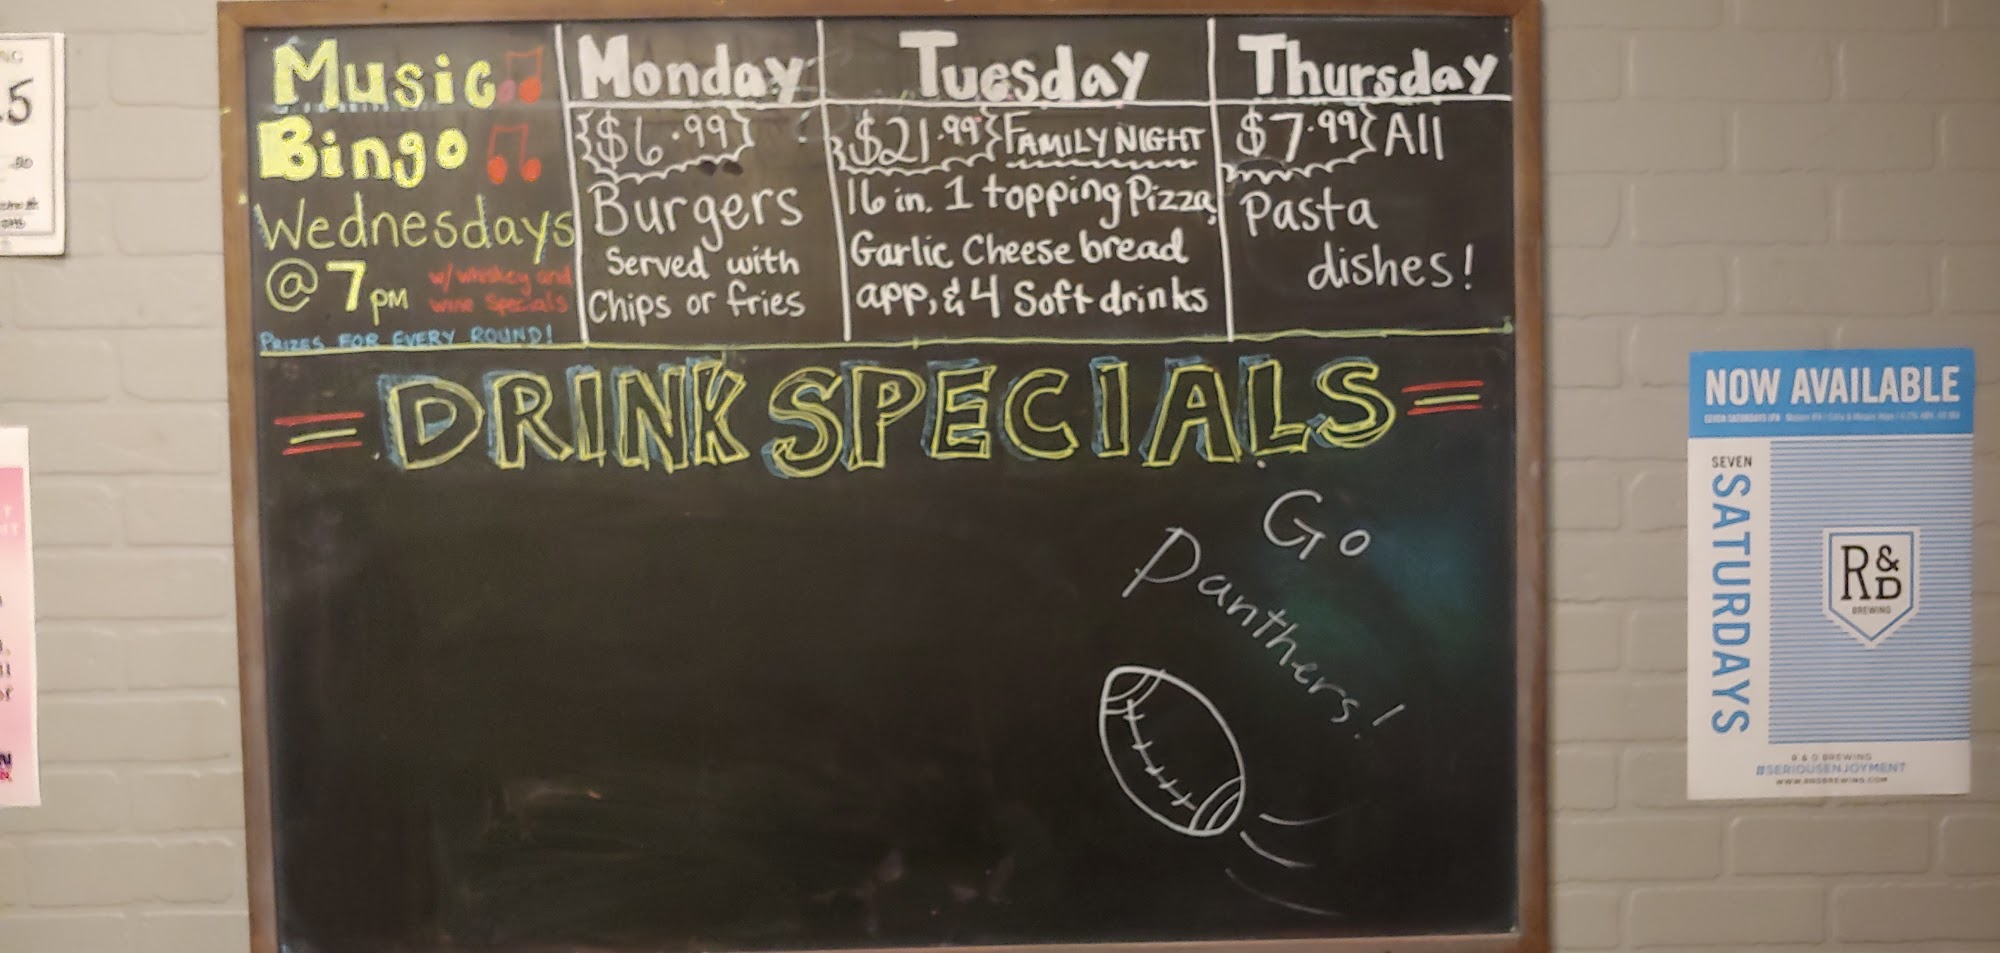 Music
Bingo
Wednesdays
@ 7PM
w/ whiskey and
wine specials
PRIZES FOR EVERY ROUND!
Monday
$6.99
Burgers
Served with
Chips or fries
Tuesday
$21.99 FAMILY NIGHT
16 in. 1 topping Pizza,
Garlic Cheese bread
app, & 4 Soft drinks
Thursday
$7.99 All
Pasta
dishes!
= DRINK SPECIALS =
Go
Panthers!
NOW AVAILABLE
SEVEN
SATURDAYS
R&D
BREWING
R & D BREWING
#SERIOUSENJOYMENT
WWW.RNDBREWING.COM